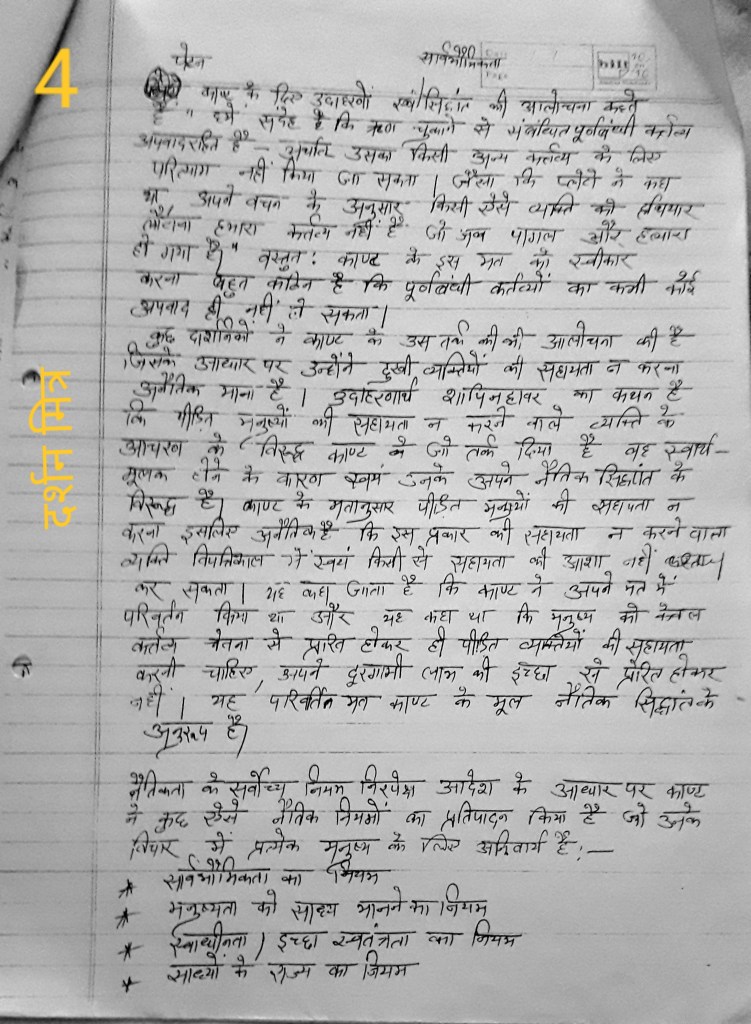 4
दर्शन मित्र
पेटन सार्वभौमिकता
Date
Page
काण्ट के दिए उदाहरणों एवं सिद्धांत की आलोचना करते
हैं " हमें संदेह है कि ऋण चुकाने से संबंधित पूर्णबंधी कर्तव्य
अपवादरहित है – अर्थात उसका किसी अन्य कर्तव्य के लिए
परित्याग नहीं किया जा सकता। जैसा कि प्लेटो ने कहा
था अपने वचन के अनुसार किसी ऐसे व्यक्ति को हथियार
लौटाना हमारा कर्तव्य नहीं है जो अब पागल और हत्यारा
हो गया है।" वस्तुतः काण्ट के इस मत को स्वीकार
करना बहुत कठिन है कि पूर्णबंधी कर्तव्यों का कभी कोई
अपवाद ही नहीं हो सकता।
कुछ दार्शनिकों ने काण्ट के उस तर्क की भी आलोचना की है
जिसके आधार पर उन्होंने दुखी व्यक्तियों की सहायता न करना
अनैतिक माना है। उदाहरणार्थ शॉपेनहावर का कथन है
कि पीड़ित मनुष्यों की सहायता न करने वाले व्यक्ति के
आचरण के विरूद्ध काण्ट ने जो तर्क दिया है वह स्वार्थ–
मूलक होने के कारण स्वयं उनके अपने नैतिक सिद्धांत के
विरूद्ध है। काण्ट के मतानुसार पीड़ित मनुष्यों की सहायता न
करना इसलिए अनैतिक है कि इस प्रकार की सहायता न करने वाला
व्यक्ति विपत्तिकाल में स्वयं किसी से सहायता की आशा नहीं
कर सकता। यह कहा जाता है कि काण्ट ने अपने मत में
परिवर्तन किया था और यह कहा था कि मनुष्य को केवल
कर्तव्य चेतना से प्रेरित होकर ही पीड़ित व्यक्तियों की सहायता
करनी चाहिए, अपने दूरगामी लाभ की इच्छा से प्रेरित होकर
नहीं। यह परिवर्तित मत काण्ट के मूल नैतिक सिद्धांत के
अनुरूप है।
नैतिकता के सर्वोच्च नियम निरपेक्ष आदेश के आधार पर काण्ट
ने कुछ ऐसे नैतिक नियमों का प्रतिपादन किया है जो उनके
विचार में प्रत्येक मनुष्य के लिए अनिवार्य हैं:–
* सार्वभौमिकता का नियम
* मनुष्यता को साध्य मानने का नियम
* स्वाधीनता / इच्छा स्वतंत्रता का नियम
* साध्यों के राज्य का नियम